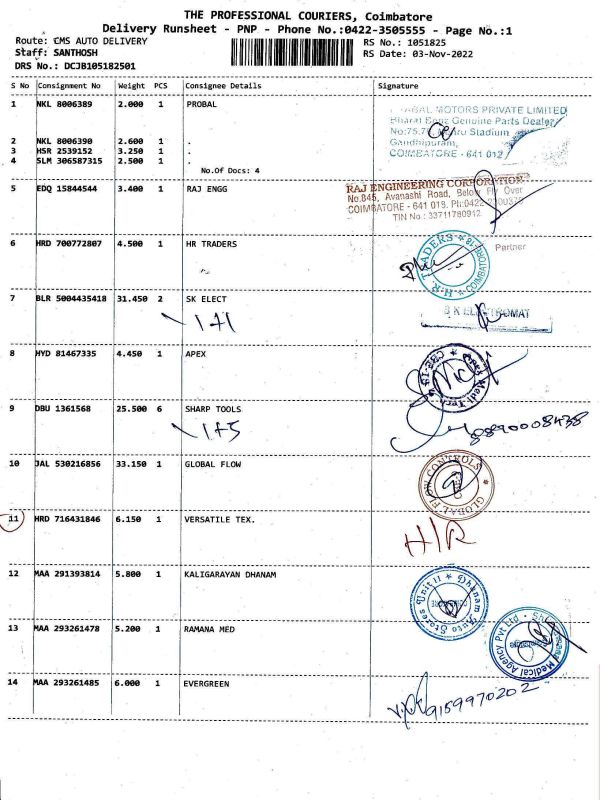 THE PROFESSIONAL COURIERS, Coimbatore
Delivery Runsheet - PNP - Phone No.:0422-3505555 - Page No.:1
Route: CMS AUTO DELIVERY
Staff: SANTHOSH
DRS No.: DCJB105182501
RS No.: 1051825
RS Date: 03-Nov-2022
S No Consignment No Weight PCS Consignee Details Signature
1 NKL 8006389 2.000 1 PROBAL
MOTORS PRIVATE LIMITED
Bharat Benz Genuine Parts Dealer
Stadium
Gandhipuram,
COIMBATORE - 641 012
2 NKL 8006390 2.600 1 .
3 HSR 2539152 3.250 1 .
4 SLM 306587315 2.500 1 .
No.Of Docs: 4
5 EDQ 15844544 3.400 1 RAJ ENGG
RAJ ENGINEERING CORPORATION
No.845, Avanashi Road, Below Fly Over
COIMBATORE - 641 018. Ph:0422
TIN No : 33711780912
6 HRD 700772807 4.500 1 HR TRADERS
H.R. TRADERS
Partner
7 BLR 5004435418 31.450 2 SK ELECT
1+1
S K ELECTROMAT
8 HYD 81467335 4.450 1 APEX
9 DBU 1361568 25.500 6 SHARP TOOLS
1+5
10 JAL 530216856 33.150 1 GLOBAL FLOW
GLOBAL FLOW CONTROLS
11 HRD 716431846 6.150 1 VERSATILE TEX.
H/R
12 MAA 291393814 5.800 1 KALIGARAYAN DHANAM
Dhanam Auto Stores Unit II
13 MAA 293261478 5.200 1 RAMANA MED
Medical Agency Pvt Ltd
14 MAA 293261485 6.000 1 EVERGREEN
9159970202